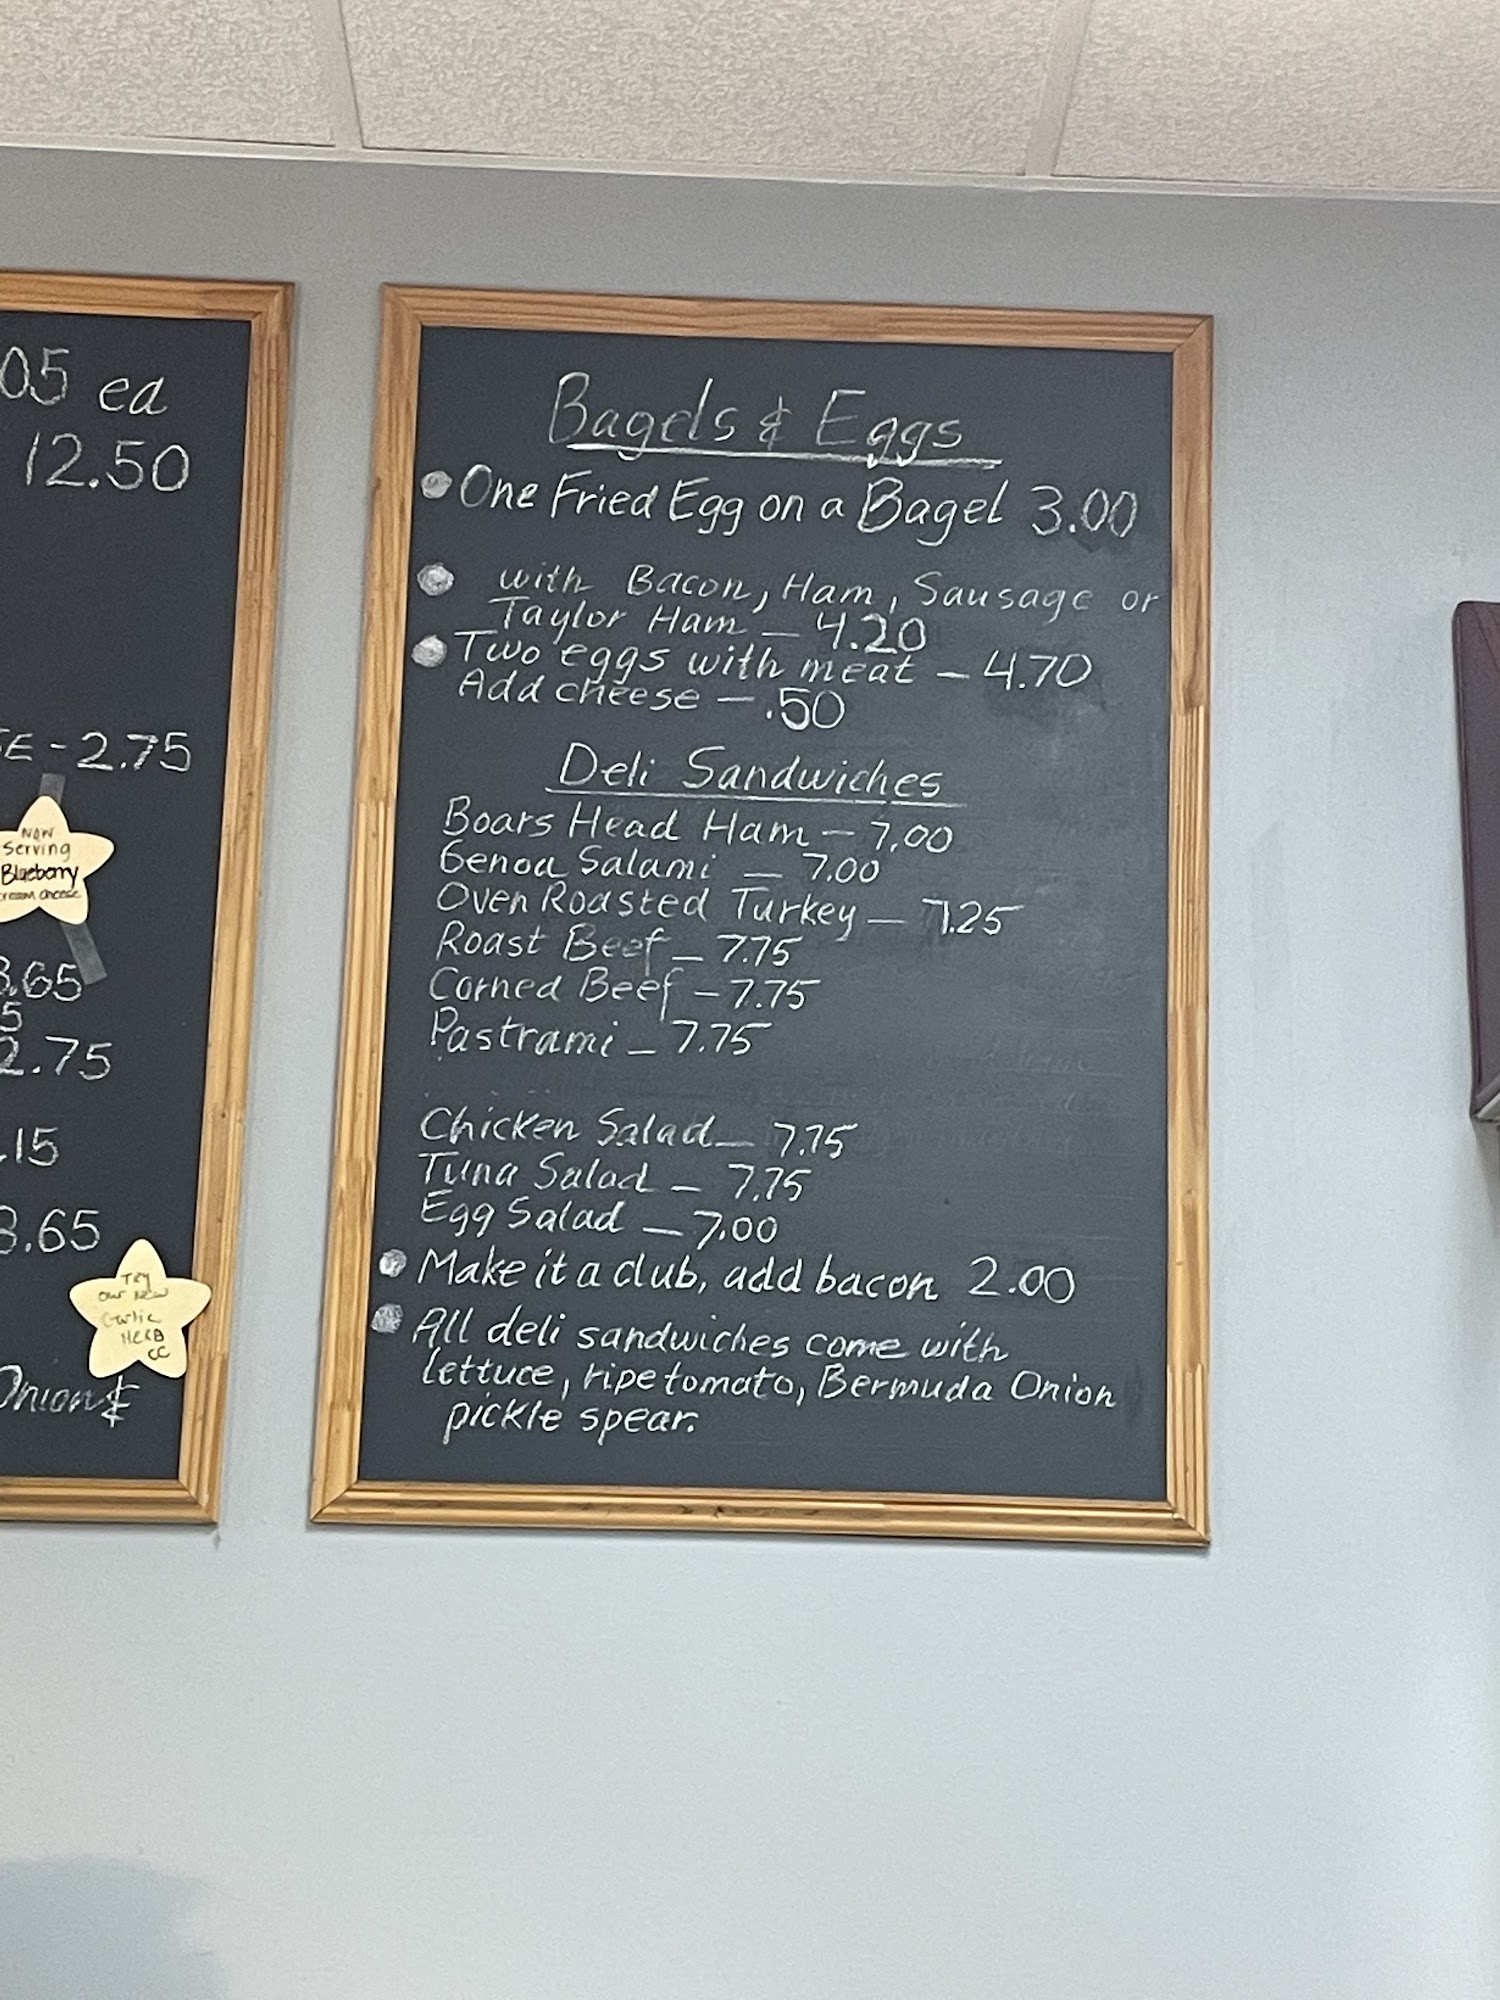 05 ea
12.50
E - 2.75
Now
Serving
Blueberry
cream cheese
3.65
5
2.75
.15
3.65
Try
our New
Garlic
HERB
CC
Onion &
Bagels & Eggs
One Fried Egg on a Bagel 3.00
with Bacon, Ham, Sausage or
Taylor Ham — 4.20
Two eggs with meat — 4.70
Add cheese — .50
Deli Sandwiches
Boars Head Ham — 7.00
Genoa Salami — 7.00
Oven Roasted Turkey — 7.25
Roast Beef — 7.75
Corned Beef — 7.75
Pastrami — 7.75
Chicken Salad — 7.75
Tuna Salad — 7.75
Egg Salad — 7.00
Make it a club, add bacon 2.00
All deli sandwiches come with
lettuce, ripe tomato, Bermuda Onion
pickle spear.